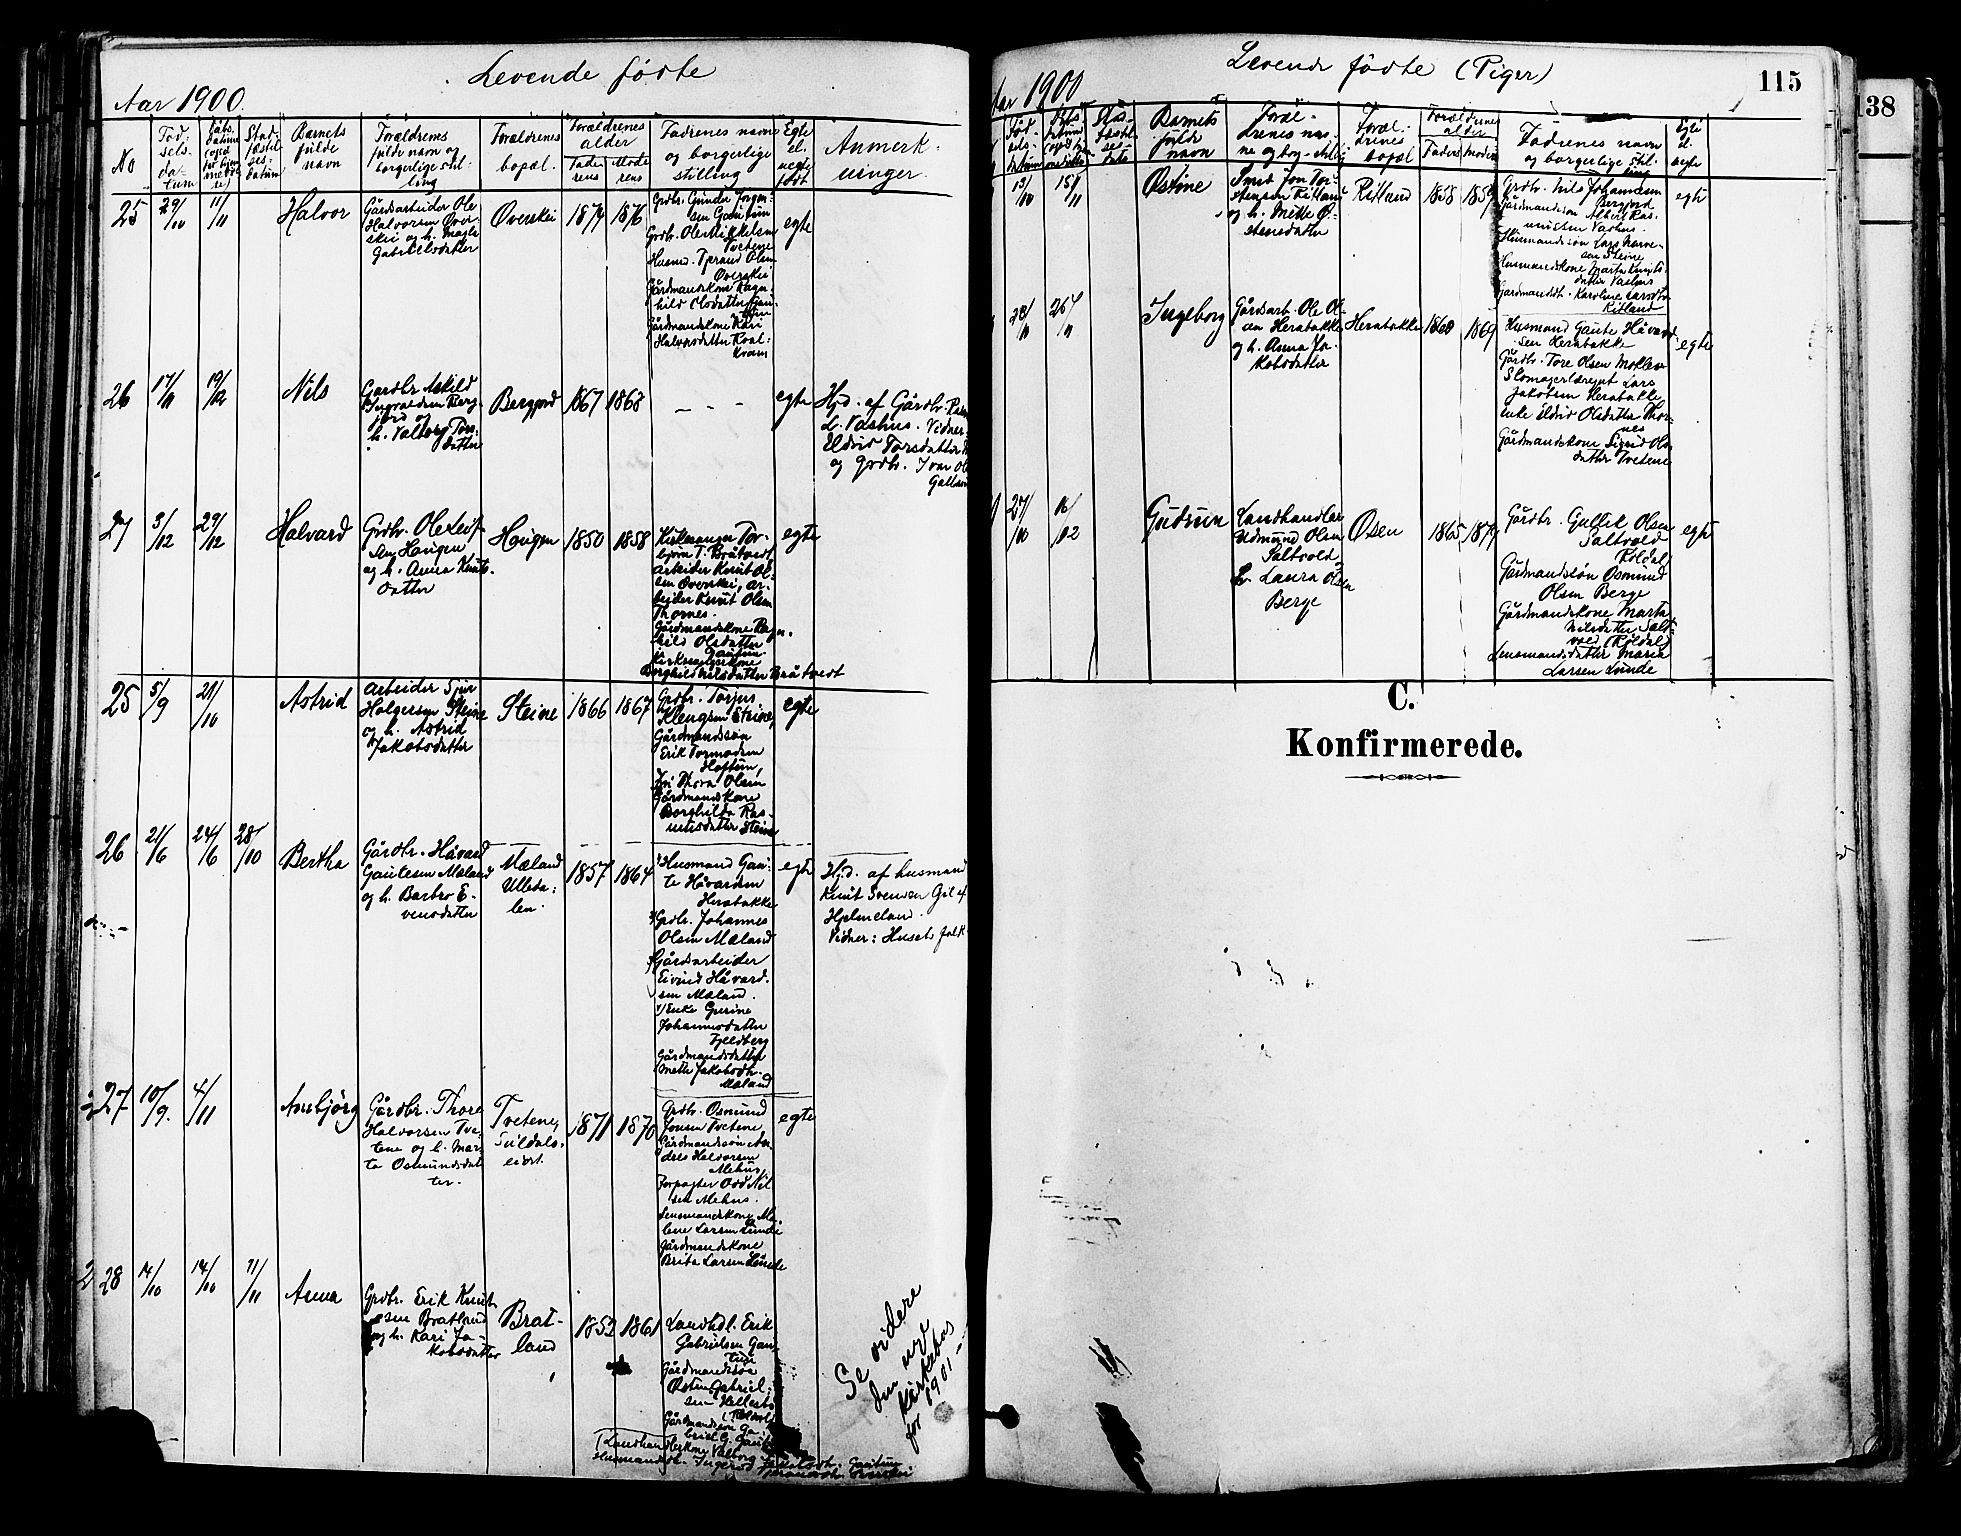 Levende fødte
Aar 1900.
No
Fød-
sels-
da-
tum
Dåbs-
datum
Stad-
fæstel-
ses-
datum
Barnets
fulde
navn
Forældrenes
fulde navn og
borgerlige stil-
ling
Forældrenes
bopæl.
Forældrenes
alder
Fade-
rens
Mode-
rens
Fadrenes navn
og borgerlige
stilling
Egte
el.
uegte
født
Anmærk-
ninger.
25
29/10
11/11
Halvor
Gårdsarbeider Ole
Halvorsen Över-
skei og h. Magla
Gabrielsdatter
Överskei
1874
1876
Grdbr. Gunder Jorgen-
sen Gautun
Grdbr. Ole Mikkelsen
Tvetene
Husmd. Tjerand Olsen
Överskei
Gårdmandskone Ragn-
hild Olsdatter Gau-
tun
Gårdmandskone Kari
Halvorsdatter Koal-
kvam
egte
26
17/11
19/12
Nils
Gardbr Askild
Ingvaldsen Berg-
jord og
h. Valborg Tors-
datter
Bergjord
1867
1868
– – –
egte
Hjd. af Gårdbr. Ras
L. Vashus. Vidner
Eldrid Torsdatter
og Grdbr. Ivar Ol
27
3/12
29/12
Halvard
Grdbr. Ole Leif-
sen Haugen
og h. Anna Knuts-
datter
Haugen
1850
1858
Kirkesanger Tor-
bjørn T. Bråtvedt
arbeider Knut Ol-
sen Överskei, ar-
beider Knut Olsen
Thornes.
Gårdmandskone Ragn-
hild Olsdatter
Gautun.
Kirkesangerkone
Borghild Nilsdatter Bråtvedt
egte
25
5/9
21/10
Astrid
Arbeider Sjur
Holgersen Steine
og h. Astrid
Jakobsdatter
Steine
1866
1867
Grdbr. Torjus
Klengsen Steine,
Gårdmandssøn
Erik Tormodsen
Hoftun,
Pri Thora Olsen
Gårdmandskone
Borghilda Ras-
musdatter Steine
egte
26
21/6
24/6
28/10
Bertha
Gårdbr. Håvard
Gautesen Mæland
og h. Barbro E-
vensdatter
Mæland
Ulleda-
len.
1857
1864
Husmand Gau-
te Håvardsen
Herabakke
Grdbr. Johannes
Olsen Mæland
Gårdsarbeider
Eivind Håvard-
sen Mæland.
Enke Gurine
Johannesdatter
Fjeldberg
Gårdmandsdatter
Mette Jakobsdtr.
Mæland
egte
Hjd. af husmand
Knut Svendsen Gil
Hjelmeland.
Vidner: Husets folk
27
10/9.
4/11
Anbjørg
Gårdbr. Thore
Halvorsen Tve-
tene og h. Mar-
ta Osmundsdat-
ter.
Tvetene,
Suldals-
eiet.
1871
1870
Grdbr. Osmund
Jonsen Tvetene
Gårdmandssøn An-
ders Halvorsen
Mehus,
Forpagter Odd Nil-
sen Mehus.
Lensmandskone Ma-
lene Larsen Lunde
Gårdmandskone
Brita Larsen Lunde
egte
28
14/10
14/10
11/11
Anna
Grdbr. Erik Knut-
sen Bratland
og h. Kari Ja-
kobsdatter
Brat-
land
1853
1861
Landhdl. Erik
Gabrielsen Gau-
tun
Gårdmandssøn
Østen Gabriel-
sen Hellestø
Gårdmandssøn Ga-
briel G. Gautun
Landhandlerkone Valborg
Husmandsdtr. Ingerid
Se videre
den nye
Kirkebog
for 1901 –
Levende fødte (Piger)
115
138
Aar 1900
Fød-
sels-
datum
Stad-
fæstel-
ses-
dato
Barnets
fulde
navn
Foræl-
drenes nav-
ne og bog. stilg
Foræl-
drenes
bopæl
Forældrenes
alder
Faders
Moders
Fadrenes navn
og borgerlige stil-
ling
Egte
el.
uegte
13/10
18/11
Østine
Smed Jon Tor-
stensen Ritland
og h. Mette Ø-
stensdatter
Ritland
1858
1859
Grdbr. Nils Johannesen
Bergjord
Gårdmandssøn Albert Ras-
mussen Vashus.
Husmandssøn Lars Narve-
sen Steine
Husmandskone Marta Knuts-
datter Vashus
Gardmandsdt. Karoline Larsdtr.
Ritland
egte
Ingeborg
Gårdsarb. Ole Ol-
sen Herabakke
og h. Anna Ja-
kobsdatter
Herabakke
1868
1869
Husmand Gaute Håvard-
sen Herabakke
Gårdbr. Tore Olsen Moklev
Skomagerlærant Lars
Jakobsen Herabakke
enke Eldrid Olsdatter Thor-
nes
Gårdmandskone Sigrid Ols-
datter Tvetene
egte
27/10
Gudrun
Landhandler
Udmund Olsen
Saltvold
h. Laura Olsen
Berge
Osen
1865
1879
Gårdbr. Gullik Olsen
Saltvold
Röldal
Gårdmandssøn Osmund
Olsen Berge
Gårdmandskone Marta
Nilsdatter Salt-
vold (Röldal)
Lensmandsdatter Maria
Larsen Lunde
egte
C.
Konfirmerede.